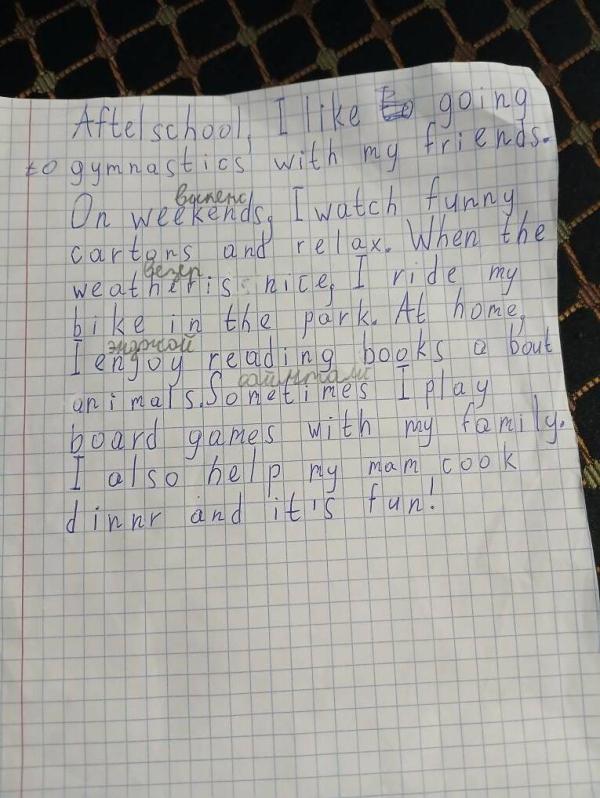 Aftelschool, I like to going
to gymnastics with my friends.
викенс
On weekends, I watch funny
cartons and relax. When the
везер
weatheris nice, I ride my
bike in the park. At home,
энджой
I engoy reading books a bout
саймтайм
animals. Sometimes I play
board games with my family.
I also help my mam cook
dinnr and it's fun!